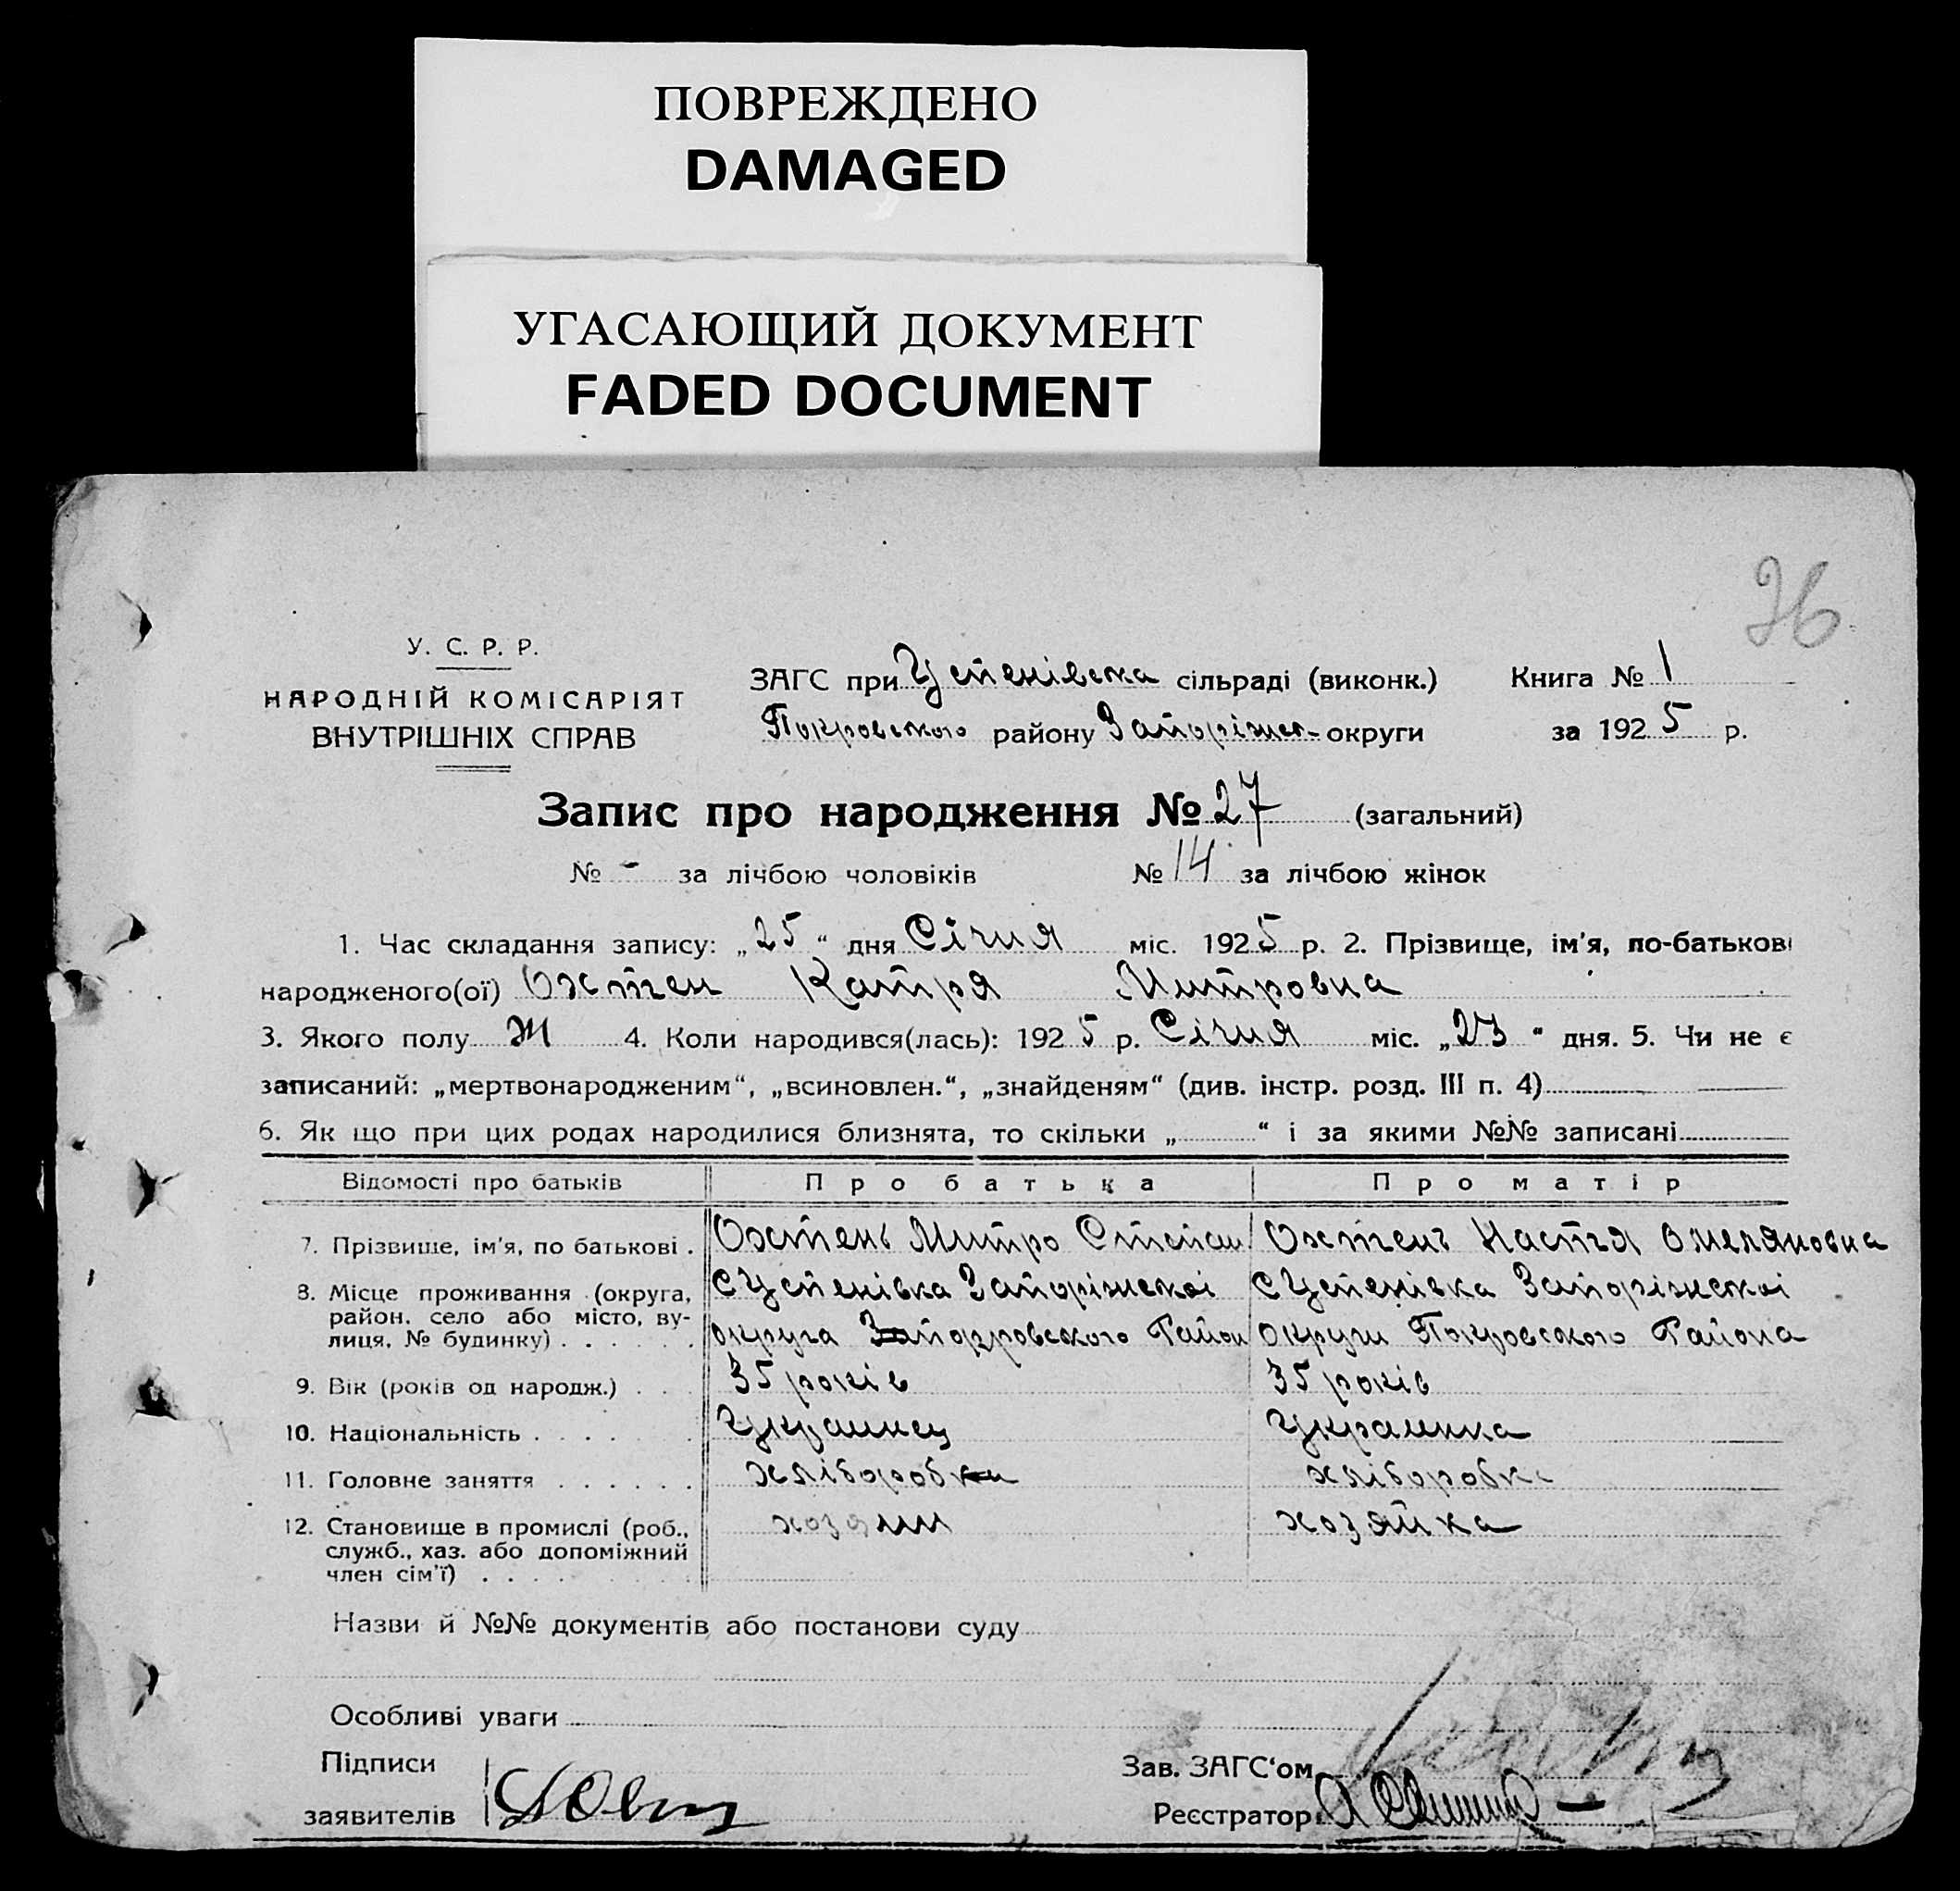 ПОВРЕЖДЕНО
DAMAGED
УГАСАЮЩИЙ ДОКУМЕНТ
FADED DOCUMENT
36
У. С. Р. Р.
НАРОДНІЙ КОМІСАРІЯТ
ВНУТРІШНІХ СПРАВ
ЗАГС при Успенівська сільраді (виконк.) Книга № 1
Покровського району Запоріжск- округи за 1925 р.
Запис про народження № 27 (загальний)
№ - за лічбою чоловіків № 14 за лічбою жінок
1. Час складання запису: „25“ дня Січня міс. 1925 р. 2. Прізвище, ім'я, по-батькові
народженого(ої) Охтен Катря Митровна
3. Якого полу Ж 4. Коли народився(лась): 1925 р. Січня міс. „23“ дня. 5. Чи не є
записаний: „мертвонародженим“, „всиновлен.“, „знайденям“ (див. інстр. розд. III п. 4)
6. Як що при цих родах народилися близнята, то скільки „ “ і за якими №№ записані
Відомості про батьків Про батька Про матір
7. Прізвище, ім'я, по батькові . Охтень Митро Степан Охтень Настья Омеляновна
8. Місце проживання (округа, С Успенівка Запоріжскоі С Успенівка Запоріжскоі
район, село або місто, ву-
лиця, № будинку) . . . . . . округа Района округи Покровского Района
9. Вік (років од народж.) . . . 35 років 35 років
10. Національність . . . . . . . Украинец Украинка
11. Головне заняття . . . . . . хліборобка хліборобка
12. Становище в промислі (роб., хозяин хозяйка
служб., хаз. або допоміжний
член сім'ї) . . . . . . . . .
Назви й №№ документів або постанови суду
Особливі уваги
Підписи
заявителів
Зав. ЗАГС'ом
Реєстратор